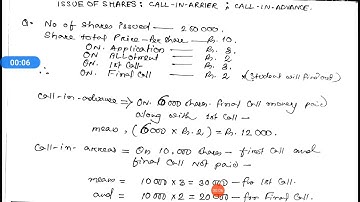 ISSUE OF SHARES: CALL-IN-ARRIER ; CALL-IN-ADVANCE.
Q. No of shares issued — 250000.
Share total Price - Per share — Rs. 10.
ON. Application — Rs. 3
ON ALLOTMENT — Rs. 2
ON. 1st Call — Rs. 3.
∴ ON. Final Call — Rs. 2 (Student will find out)
Call-in-advance => ON. 6000 shares. final call money paid
along with 1st call -
means, (6000 x Rs. 2) = Rs. 12000.
Call-in arrears = On 10,000 shares - first call and
final call NOT paid -
means = 10000 x 3 = 30000 - for 1st Call.
and = 10000 x 2 = 20000 - for Final Call.
00:06
00:06